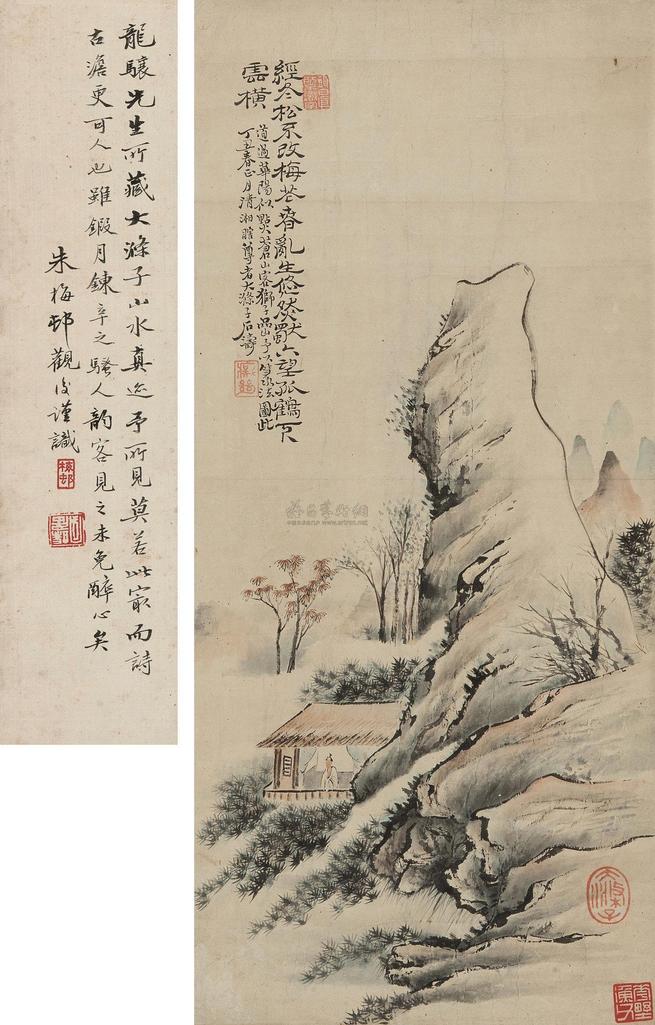 龍驤先生所藏大滌子山水真迹予所見莫若此最而詩
古澹更可人也雖鍛月鍊辛之騷人韵客見之未免醉心矣
朱梅邨觀後謹識
梅邨
經冬松不改梅花春亂生悠然獸六望孤鶴下
雲橫
道過華陽似點蒼山客獅子皋予以篆法圖此
丁丑春正月清湘瞎尊者大滌子石濤
大滌子